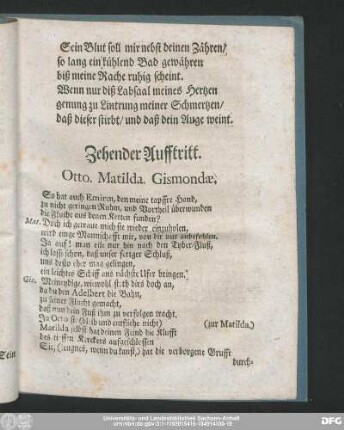 Sein Blut soll mir nebst deinen Zähren/
so lang ein kühlend Bad gewähren
biß meine Rache ruhig scheint.
Wenn nur diß Labsaal meines Hertzen
genung zu Lintrung meiner Schmertzen/
daß dieser stirbt/ und daß dein Auge weint.
Zehender Aufftritt.
Otto. Matilda. Gismondæ,
So hat auch Emiren, den meine tapffre Hand,
zu nicht geringen Ruhm, und Vortheil überwunden
die Flucht aus denen Ketten funden?
Mat. Doch ich getraue mich sie wieder einzuholen,
wird einge Mannschafft mir, von dir nur anbefohlen.
Ja auf! man eile nur hin nach den Tyber-Fluß,
ich loß schon, daß unser fertger Schluß,
uns desto eher mag gelingen,
ein leichtes Schiff ans nächste Ufer bringen.
Gis. Meineydige, wiewohl steht dirs doch an,
da du den Adelbert die Bahn,
zu seiner Flucht gemacht,
daß nun dein Fuß ihm zu verfolgen tracht.
Ja Otto ists (glaub und entfliehe nicht) (zur Matilda.)
Matilda selbst hat deinen Feind die Klufft
des tieffen Kerckers aufgeschlossen
Sie, (leugnes, wenn du kanst,) hat die verborgene Grufft
durch-
Sein
Universitäts- und Landesbibliothek Sachsen-Anhalt
DFG